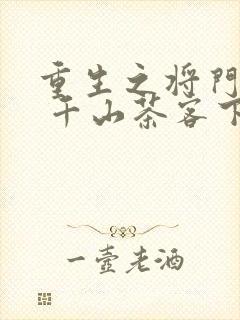 重生之将門
千山茶客下
一壺老酒